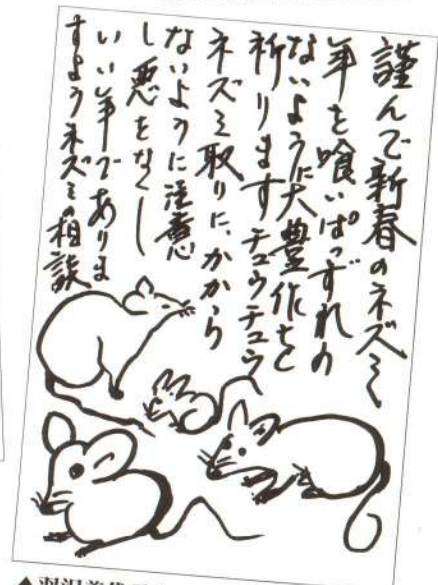 謹んで新春のネズミ
年を喰いぱっずれの
ないように大豊作を
祈りますチュウチュウ
ネズミ取りに、かから
ないように注意
し悪をなくし
いい年でありま
すようネズミの相談